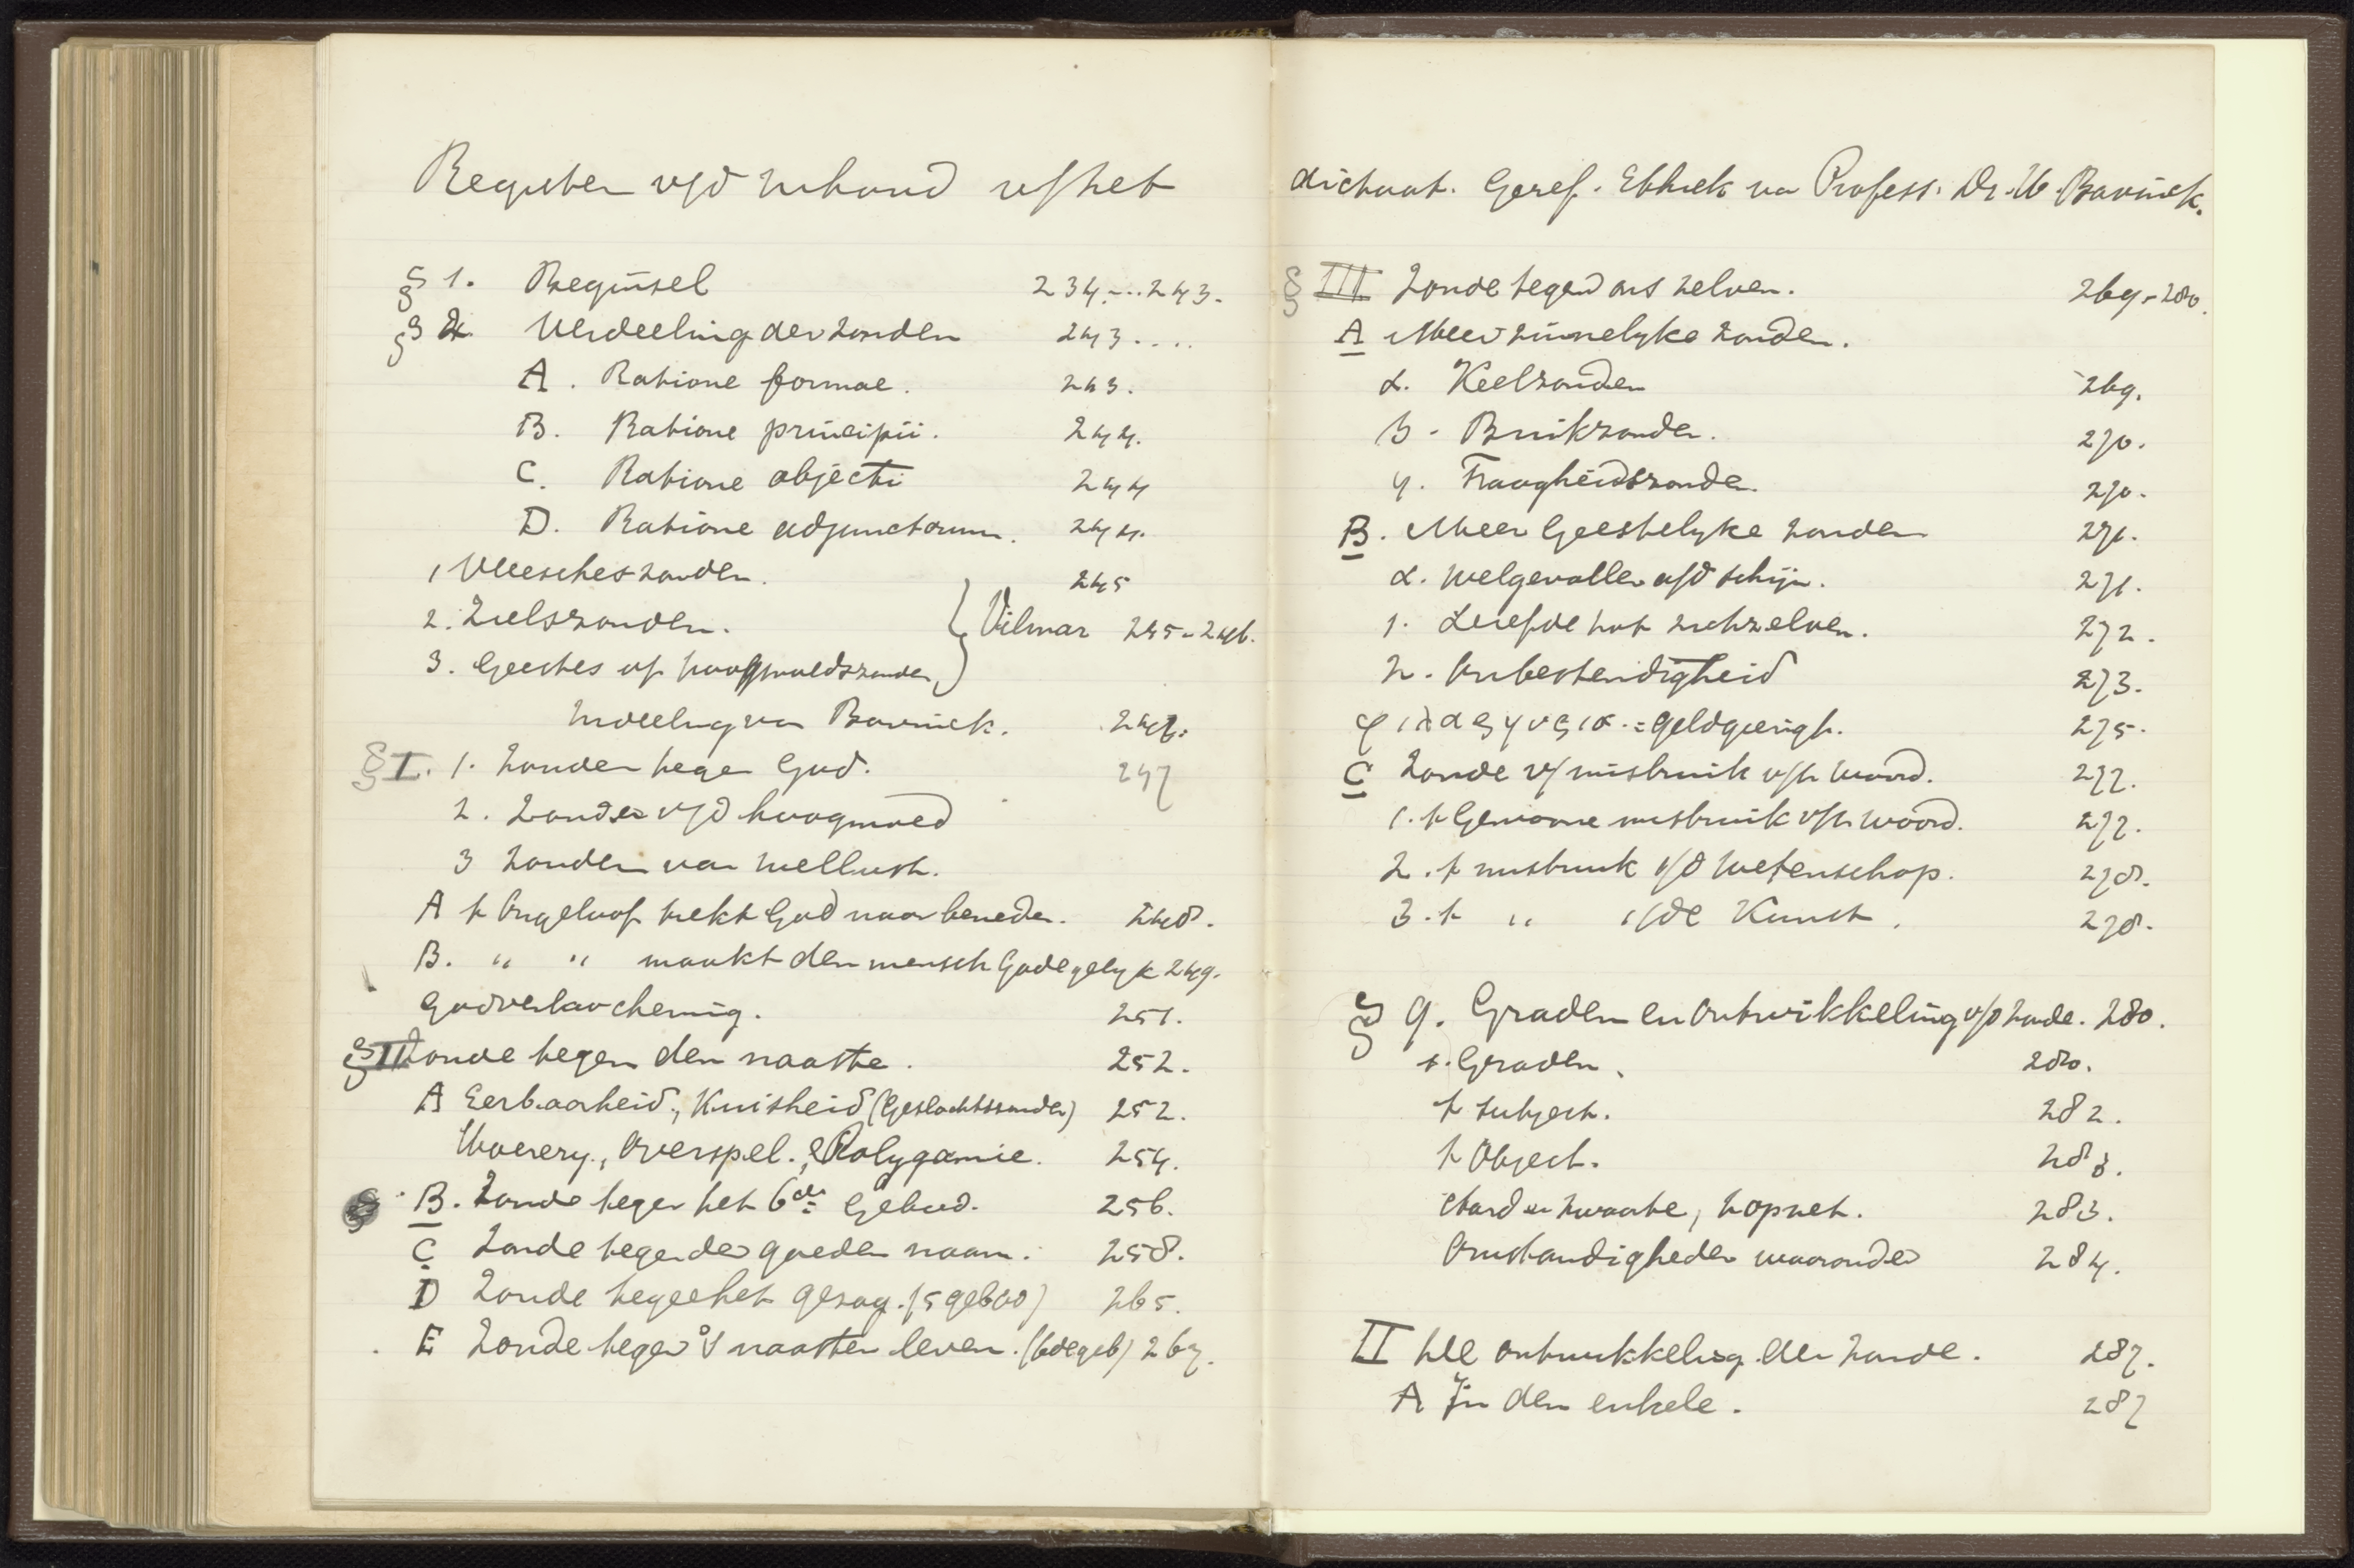 Register v/d Inhoud v/het
§ 1. Beginsel 234....243.
§ 2. Verdeeling der zonden 243....
A. Ratione formae. 243.
B. Ratione principii. 244.
C. Ratione objecti 244
D. Ratione adjunctorum. 244.
1 Vleesches zonden. 245
2. Zielszonden. Vilmar 245-246.
3. Geestes of hoogmoedszonden
Indeeling van Bavinck. 247.
§ I. 1. Zonden tegen God. 247
2. Zonden v/d hoogmoed
3 Zonden van wellust.
A t Ongeloof trekt God naar beneden. 248.
B. " " maakt den mensch Gode gelyk 249.
Godverloochening. 251.
§ II Zonde tegen den naaste. 252.
A Eerbaarheid, Kuisheid (Geslachtszonden) 252.
Hoerery, Overspel. Polygamie. 254.
B. Zonde tegen het 6de Gebod. 256.
C Zonde tegen den goeden naam. 258.
D Zonde tegen het gezag. (5 gebod) 265.
E Zonde tegen d naasten leven. (6de geb) 267.
dictaat. Geref. Ethiek van Profess. Dr. H. Bavinck.
§ III Zonde tegen ons zelven. 269-280.
A Meer zinnelyke zonden.
α. Keelzonden 269.
β. Buikzonden. 270.
γ. Traagheidszonden. 270.
B. Meer Geestelyke zonden 271.
α. Welgevallen a/d schijn. 271.
1. Liefde tot zichzelven. 272.
2. Onbestendigheid 273.
φιλαργυρια. = geldgierigh. 275.
C Zonde v/ misbruik v/h woord. 277.
1. t Gewone misbruik v/h woord. 277.
2. t misbruik v/d Wetenschap. 278.
3. t " v/de Kunst. 278.
§ 9. Graden en Ontwikkeling v/d zonde. 280.
1. Graden. 280.
t subject. 282.
t Object. 283.
Aard en zwaarte, 283.
Omstandigheden waaronder 284.
II De ontwikkeling der zonde. 287.
A In den enkele. 287